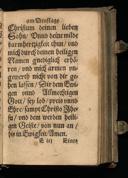 am Dienstage
Christum deinen lieben
Sohn / Dund deine milde
barmhertzigkeit thun / und
mich durch deinen heiligen
Namen gnediglich erhö-
ren / und mich armen un-
gewerth nicht von dir ge-
hen lassen / Dir dem Ewi-
gen und Allmechtigen
Gott / sey lob / preis unnd
Ehre / sampt Christo Jhe-
su / und dem werden heili-
gen Geiste / von nun an /
bis in Ewigkeit / Amen.
E iij Einer